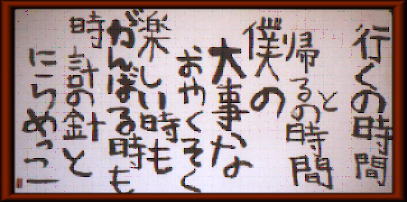 行くの時間
と
帰るの時間
僕の
大事な
おやくそく
楽しい時も
がんばる時も
時計の針と
にらめっこ